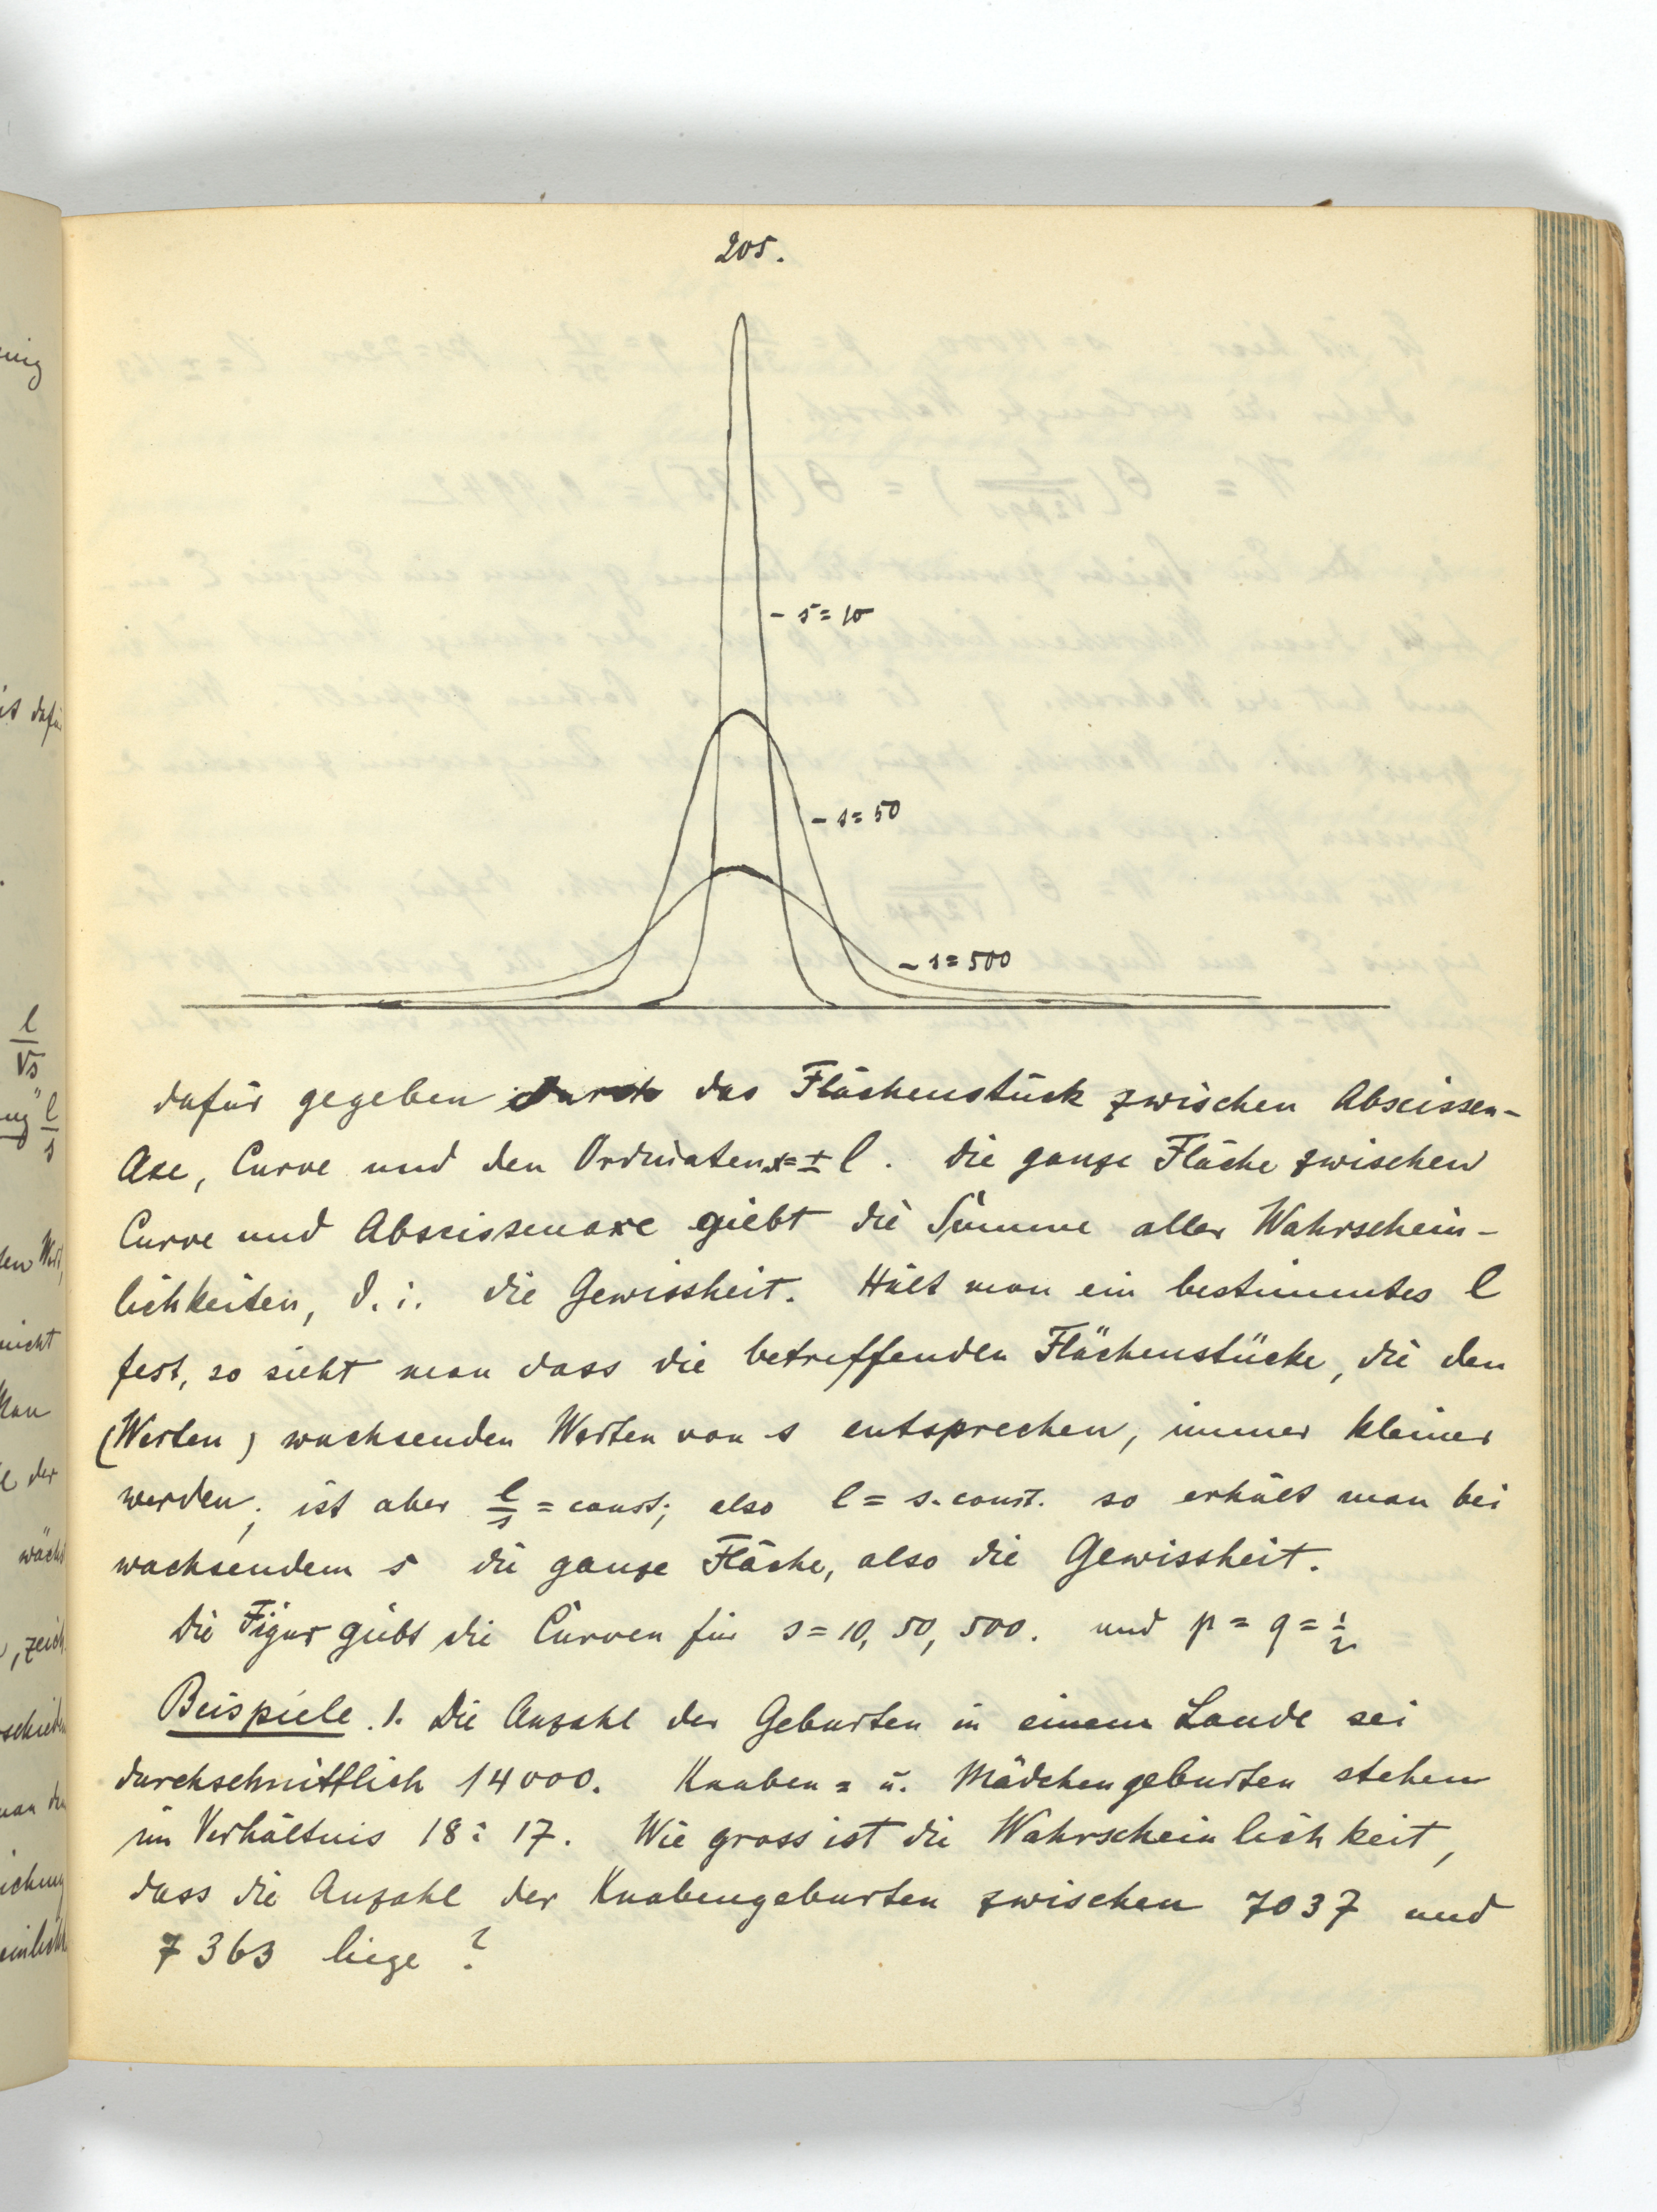 205.
- s = 10
- s = 50
- s = 500
dafür gegeben durch das Flächenstück zwischen Abscissen-
Axe, Curve und den Ordinaten x = ± l. Die ganze Fläche zwischen
Curve und Abscissenaxe giebt die Summe aller Wahrschein-
lichkeiten, d. i. die Gewissheit. Hält man ein bestimmtes l
fest, so sieht man dass die betreffenden Flächenstücke, die den
(Werten) wachsenden Werten von s entsprechen, immer kleiner
werden; ist aber l/s = const; also l = s. const. so erhält man bei
wachsendem s die ganze Fläche, also die Gewissheit.
Die Figur giebt die Curven für s = 10, 50, 500. und p = q = 1/2
Beispiele. 1. Die Anzahl der Geburten in einem Lande sei
durchschnittlich 14000. Knaben = u. Mädchengeburten stehen
im Verhältnis 18 : 17. Wie gross ist die Wahrscheinlichkeit,
dass die Anzahl der Knabengeburten zwischen 7037 und
7363 liege ?